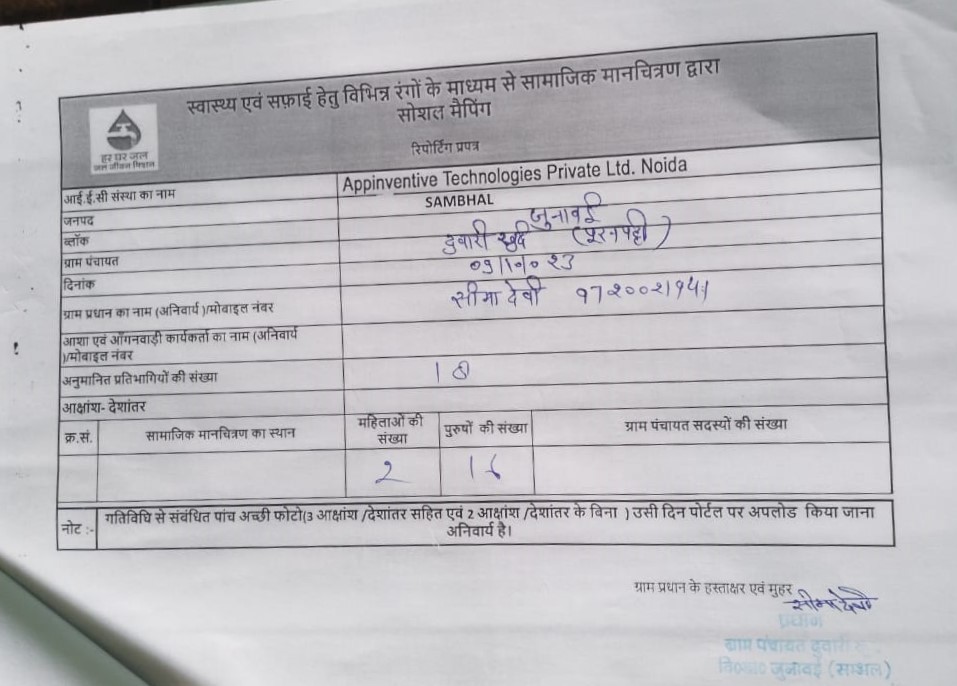 स्वास्थ्य एवं सफ़ाई हेतु विभिन्न रंगों के माध्यम से सामाजिक मानचित्रण द्वारा
सोशल मैपिंग
रिपोर्टिंग प्रपत्र
हर घर जल
जल जीवन मिशन
आई.ई.सी संस्था का नाम Appinventive Technologies Private Ltd. Noida
जनपद SAMBHAL
ब्लॉक जुनावई
ग्राम पंचायत दुबारी खुर्द (पूरनपट्टी)
दिनांक
ग्राम प्रधान का नाम (अनिवार्य )/मोबाइल नंबर सीमा देवी
आशा एवं आँगनवाड़ी कार्यकर्ता का नाम (अनिवार्य
)/मोबाइल नंबर
अनुमानित प्रतिभागियों की संख्या
आक्षांश- देशांतर
क्र.सं. सामाजिक मानचित्रण का स्थान महिलाओं की संख्या पुरुषों की संख्या ग्राम पंचायत सदस्यों की संख्या
2 16
नोट :- गतिविधि से संबंधित पांच अच्छी फोटो(3 आक्षांश /देशांतर सहित एवं 2 आक्षांश /देशांतर के विना ) उसी दिन पोर्टल पर अपलोड किया जाना
अनिवार्य है।
ग्राम प्रधान के हस्ताक्षर एवं मुहर
सीमा देवी
प्रधान
ग्राम पंचायत दुबारी
जुनावई (सम्भल)